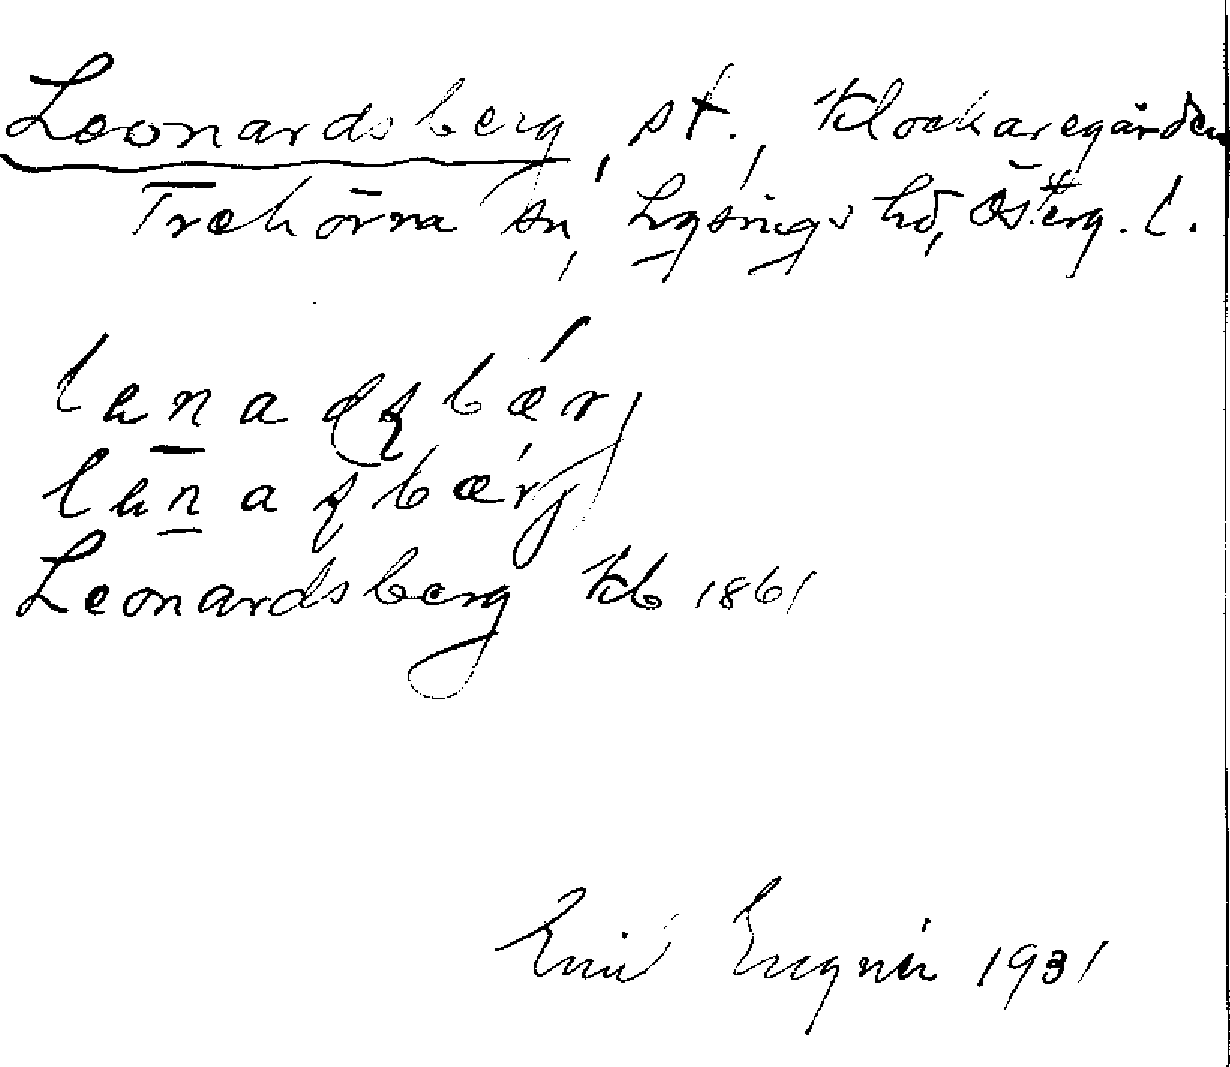 Leonardsberg, st., Klockaregården
Trehörna sn, Lysings hd, Österg. l.
lenadsbærj
lenasbærj
Leonardsberg Kb 1861
Emil Engnér 1931